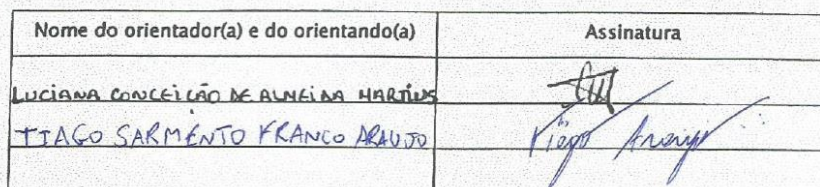 Nome do orientador(a) e do orientando(a) Assinatura
LUCIANA CONCEIÇÃO DE ALMEIDA MARTINS
TIAGO SARMENTO FRANCO ARAUJO Tiago Araujo